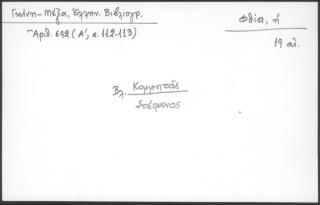 Γκίνη-Μέξα, Ἑλλην. Βιβλιογρ.
Ἀριθ. 692 (Α', σ. 112-113)
Φθία, ἡ
19 αἰ.
Βλ. Κομητᾶς
Στέφανος